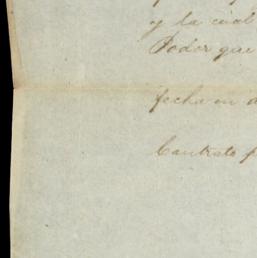 y la cual
Poder que
fecha en
Contrato p